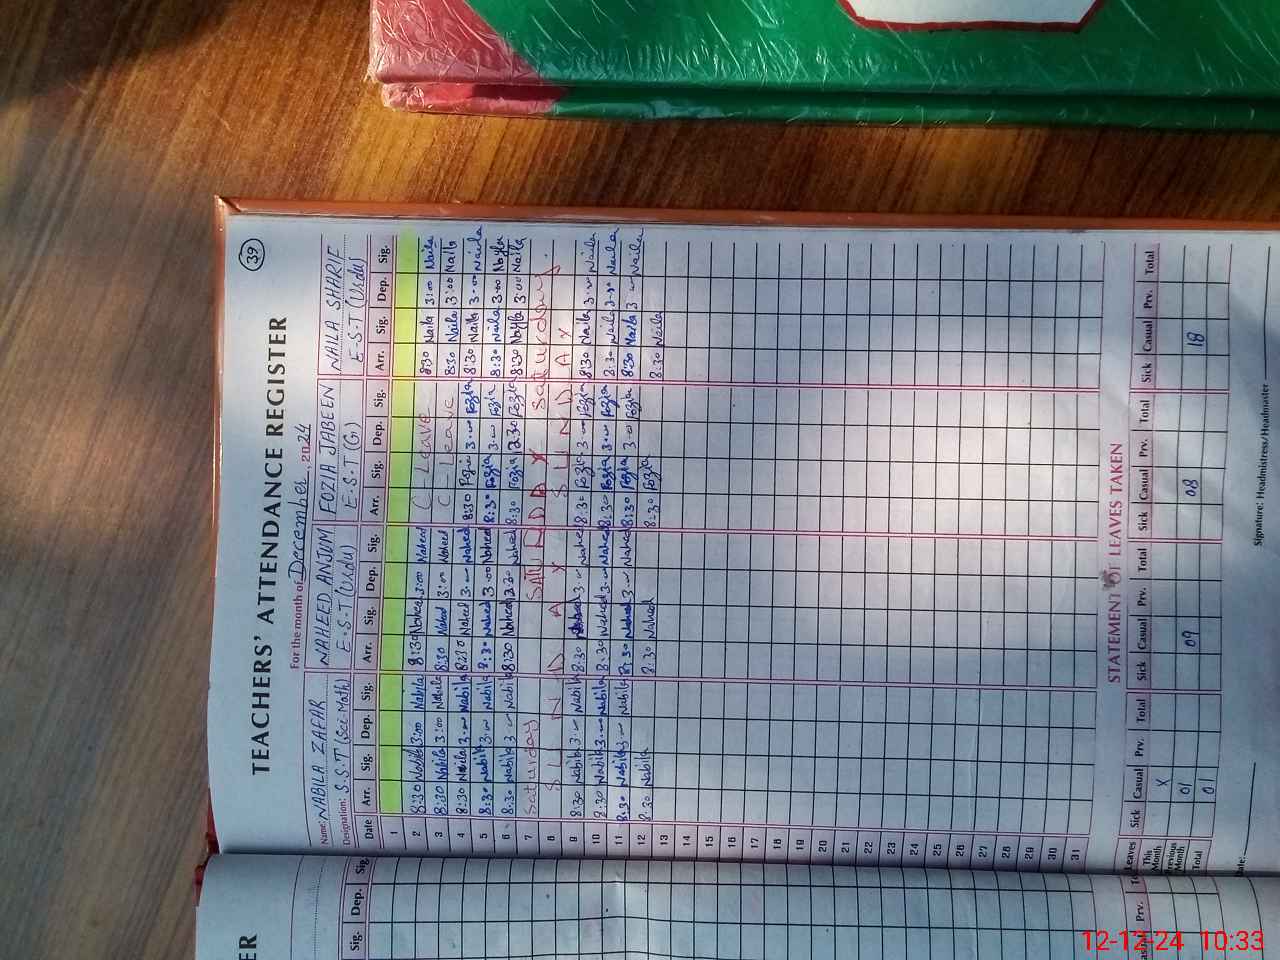 39
TEACHERS' ATTENDANCE REGISTER
For the month of December, 2024
Name: NABILA ZAFAR NAHEED ANJUM FOZIA JABEEN NAILA SHARIF
Designation: S.S.T (Sci-Math) E.S.T (Urdu) E.S.T (G.) E-S-T (Urdu)
Date Arr. Sig. Dep. Sig. Arr. Sig. Dep. Sig. Arr. Sig. Dep. Sig. Arr. Sig. Dep. Sig.
1
2 8:30 Nabila 3:00 Nabila 8:30 Naheed 3:00 Naheed C-Leave 8:30 Naila 3:00 Naila
3 8:30 Nabila 3:00 Nabila 8:30 Naheed 3:00 Naheed C-Leave 8:30 Naila 3:00 Naila
4 8:30 Nabila 3.00 Nabila Naheed 3.00 Naheed 8:30 Fozia 3.00 Fozia 8:30 Naila 3.00 Naila
5 8:30 Nabila 3.00 Nabila 8:30 Naheed 3.00 Naheed 8:30 Fozia 3.00 Fozia 8:30 Naila 3.00 Nayla
6 8:30 Nabila 3.00 Nabila 8:30 Naheed Naheed 8:30 Fozia 12.30 Fozia 8:30 Nayla 3.00 Naila
7 Saturday SATURDAY Saturday
8 SUNDAY SUNDAY
9 8:30 Nabila 3.00 Nabila 8:30 3.00 Naheed 8:30 Fozia 3.00 Fozia 8:30 Naila 3.00 Naila
10 8:30 Nabila 3.00 Nabila 8:30 Naheed 3.00 Naheed 8:30 Fozia 3.00 Fozia 8:30 Naila 3.00 Naila
11 8:30 Nabila 3.00 Nabila 8:30 Naheed 3.00 Naheed 8:30 Fozia 3.00 Fozia 8:30 Naila 3.00 Naila
12 8:30 Nabila 8:30 Naheed 8:30 Fozia 8:30 Naila
13
14
15
16
17
18
19
20
21
22
23
24
25
26
27
28
29
30
31
STATEMENT OF LEAVES TAKEN
Leaves Sick Casual Prv. Total Sick Casual Prv. Total Sick Casual Prv. Total Sick Casual Prv. Total
This Month X
Previous Month 01 09 08 18
Total 01
Date: Signature: Headmistress/Headmaster
ER
Sig. Dep. Sig.
Prv.
12-12-24 10:33